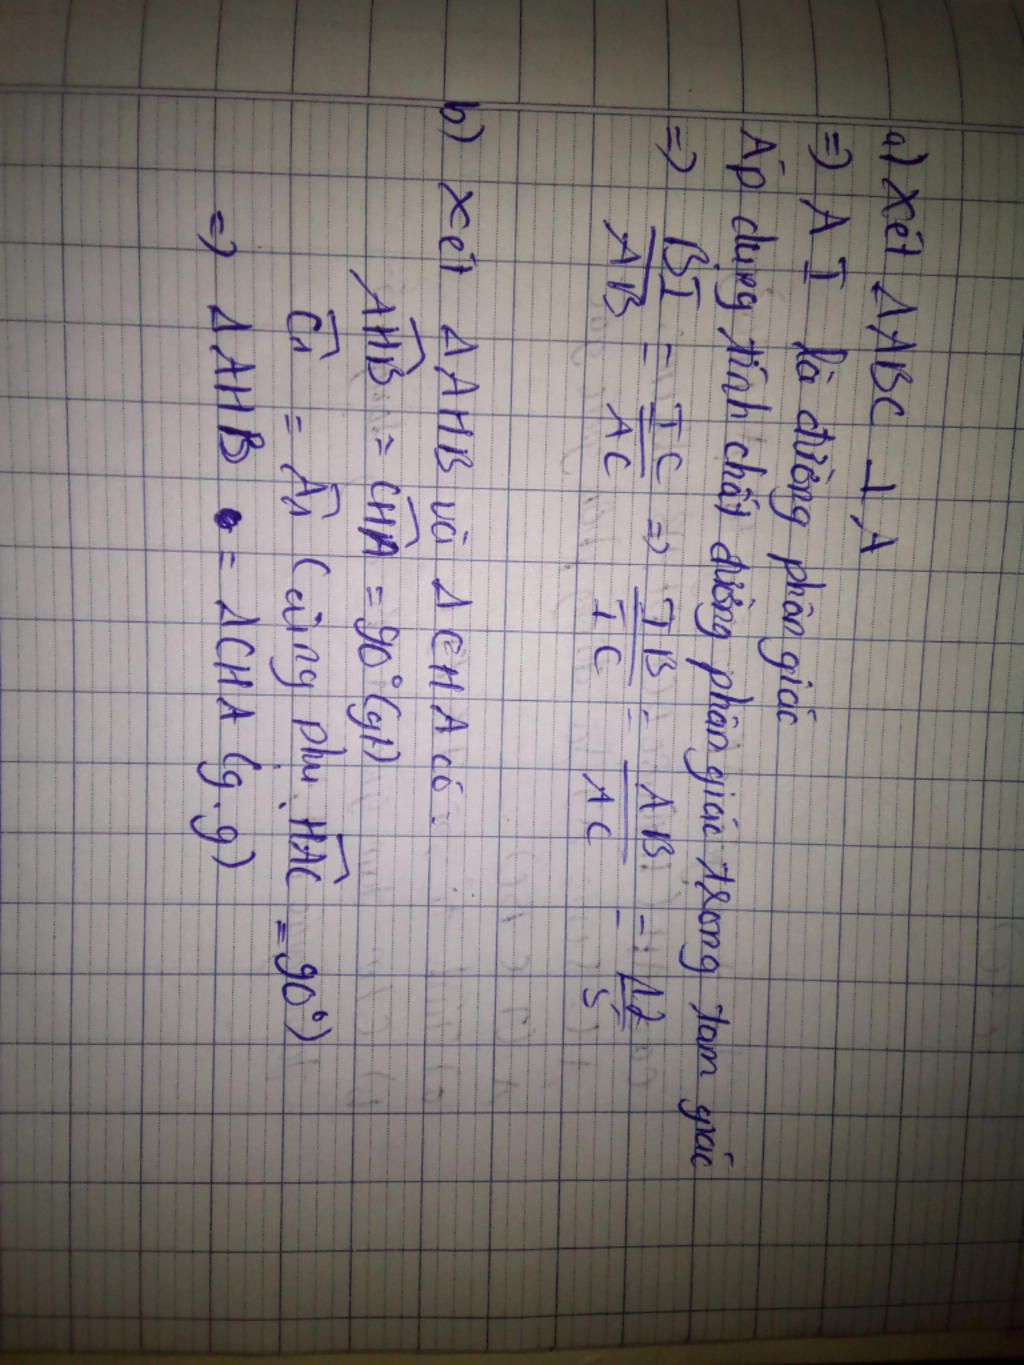 a) Xét ΔABC ⊥ A
=> AI là đường phân giác
Áp dụng tính chất đường phân giác trong tam giác
=> BI/AB = IC/AC => IB/IC = AB/AC = 12/5
b) Xét ΔAHB và ΔCHA có:
AHB = CHA = 90° (gt)
C1 = A1 (cùng phụ HAC = 90°)
=> ΔAHB = ΔCHA (g.g)